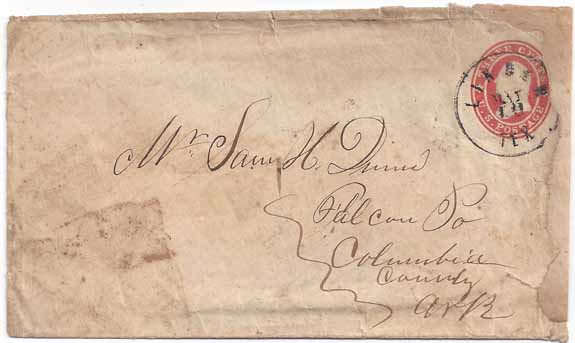 THREE CENTS
U.S. POSTAGE
LINDEN
MAY
TEX
Mr Sam H. Dunn
Falcon Po
Columbia
County
Ark